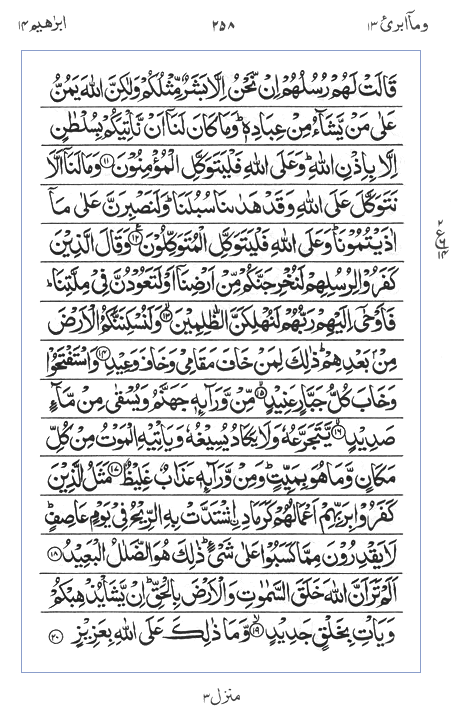 ومآ ابرئ ١٣ ٢٥٨ ابرٰهيم ١٤
قَالَتْ لَهُمْ رُسُلُهُمْ اِنْ نَّحْنُ اِلَّا بَشَرٌ مِّثْلُكُمْ وَلٰكِنَّ اللّٰهَ يَمُنُّ
عَلٰى مَنْ يَّشَآءُ مِنْ عِبَادِهٖؕ وَمَا كَانَ لَنَاۤ اَنْ نَّاْتِيَكُمْ بِسُلْطٰنٍ
اِلَّا بِاِذْنِ اللّٰهِؕ وَعَلَى اللّٰهِ فَلْيَتَوَكَّلِ الْمُؤْمِنُوْنَ ۝۱۱ وَمَا لَنَاۤ اَلَّا
نَتَوَكَّلَ عَلَى اللّٰهِ وَقَدْ هَدٰىنَا سُبُلَنَاؕ وَلَنَصْبِرَنَّ عَلٰى مَاۤ
اٰذَيْتُمُوْنَاؕ وَعَلَى اللّٰهِ فَلْيَتَوَكَّلِ الْمُتَوَكِّلُوْنَ ۝۱۲ وَقَالَ الَّذِيْنَ
كَفَرُوْا لِرُسُلِهِمْ لَنُخْرِجَنَّكُمْ مِّنْ اَرْضِنَاۤ اَوْ لَتَعُوْدُنَّ فِيْ مِلَّتِنَاؕ
فَاَوْحٰۤى اِلَيْهِمْ رَبُّهُمْ لَنُهْلِكَنَّ الظّٰلِمِيْنَ ۝۱۳ وَلَنُسْكِنَنَّكُمُ الْاَرْضَ
مِنْۢ بَعْدِهِمْؕ ذٰلِكَ لِمَنْ خَافَ مَقَامِيْ وَخَافَ وَعِيْدِ ۝۱۴ وَاسْتَفْتَحُوْا
وَخَابَ كُلُّ جَبَّارٍ عَنِيْدٍ ۝۱۵ مِّنْ وَّرَآئِهٖ جَهَنَّمُ وَيُسْقٰى مِنْ مَّآءٍ
صَدِيْدٍ ۝۱۶ يَّتَجَرَّعُهٗ وَلَا يَكَادُ يُسِيْغُهٗ وَيَاْتِيْهِ الْمَوْتُ مِنْ كُلِّ
مَكَانٍ وَّمَا هُوَ بِمَيِّتٍؕ وَمِنْ وَّرَآئِهٖ عَذَابٌ غَلِيْظٌ ۝۱۷ مَثَلُ الَّذِيْنَ
كَفَرُوْا بِرَبِّهِمْ اَعْمَالُهُمْ كَرَمَادِ ِۨاشْتَدَّتْ بِهِ الرِّيْحُ فِيْ يَوْمٍ عَاصِفٍؕ
لَا يَقْدِرُوْنَ مِمَّا كَسَبُوْا عَلٰى شَيْءٍؕ ذٰلِكَ هُوَ الضَّلٰلُ الْبَعِيْدُ ۝۱۸
اَلَمْ تَرَ اَنَّ اللّٰهَ خَلَقَ السَّمٰوٰتِ وَالْاَرْضَ بِالْحَقِّؕ اِنْ يَّشَاْ يُذْهِبْكُمْ
وَيَاْتِ بِخَلْقٍ جَدِيْدٍ ۝۱۹ وَّمَا ذٰلِكَ عَلَى اللّٰهِ بِعَزِيْزٍ ۝۲۰
٢
ع
٦
١٤
منزل ٣